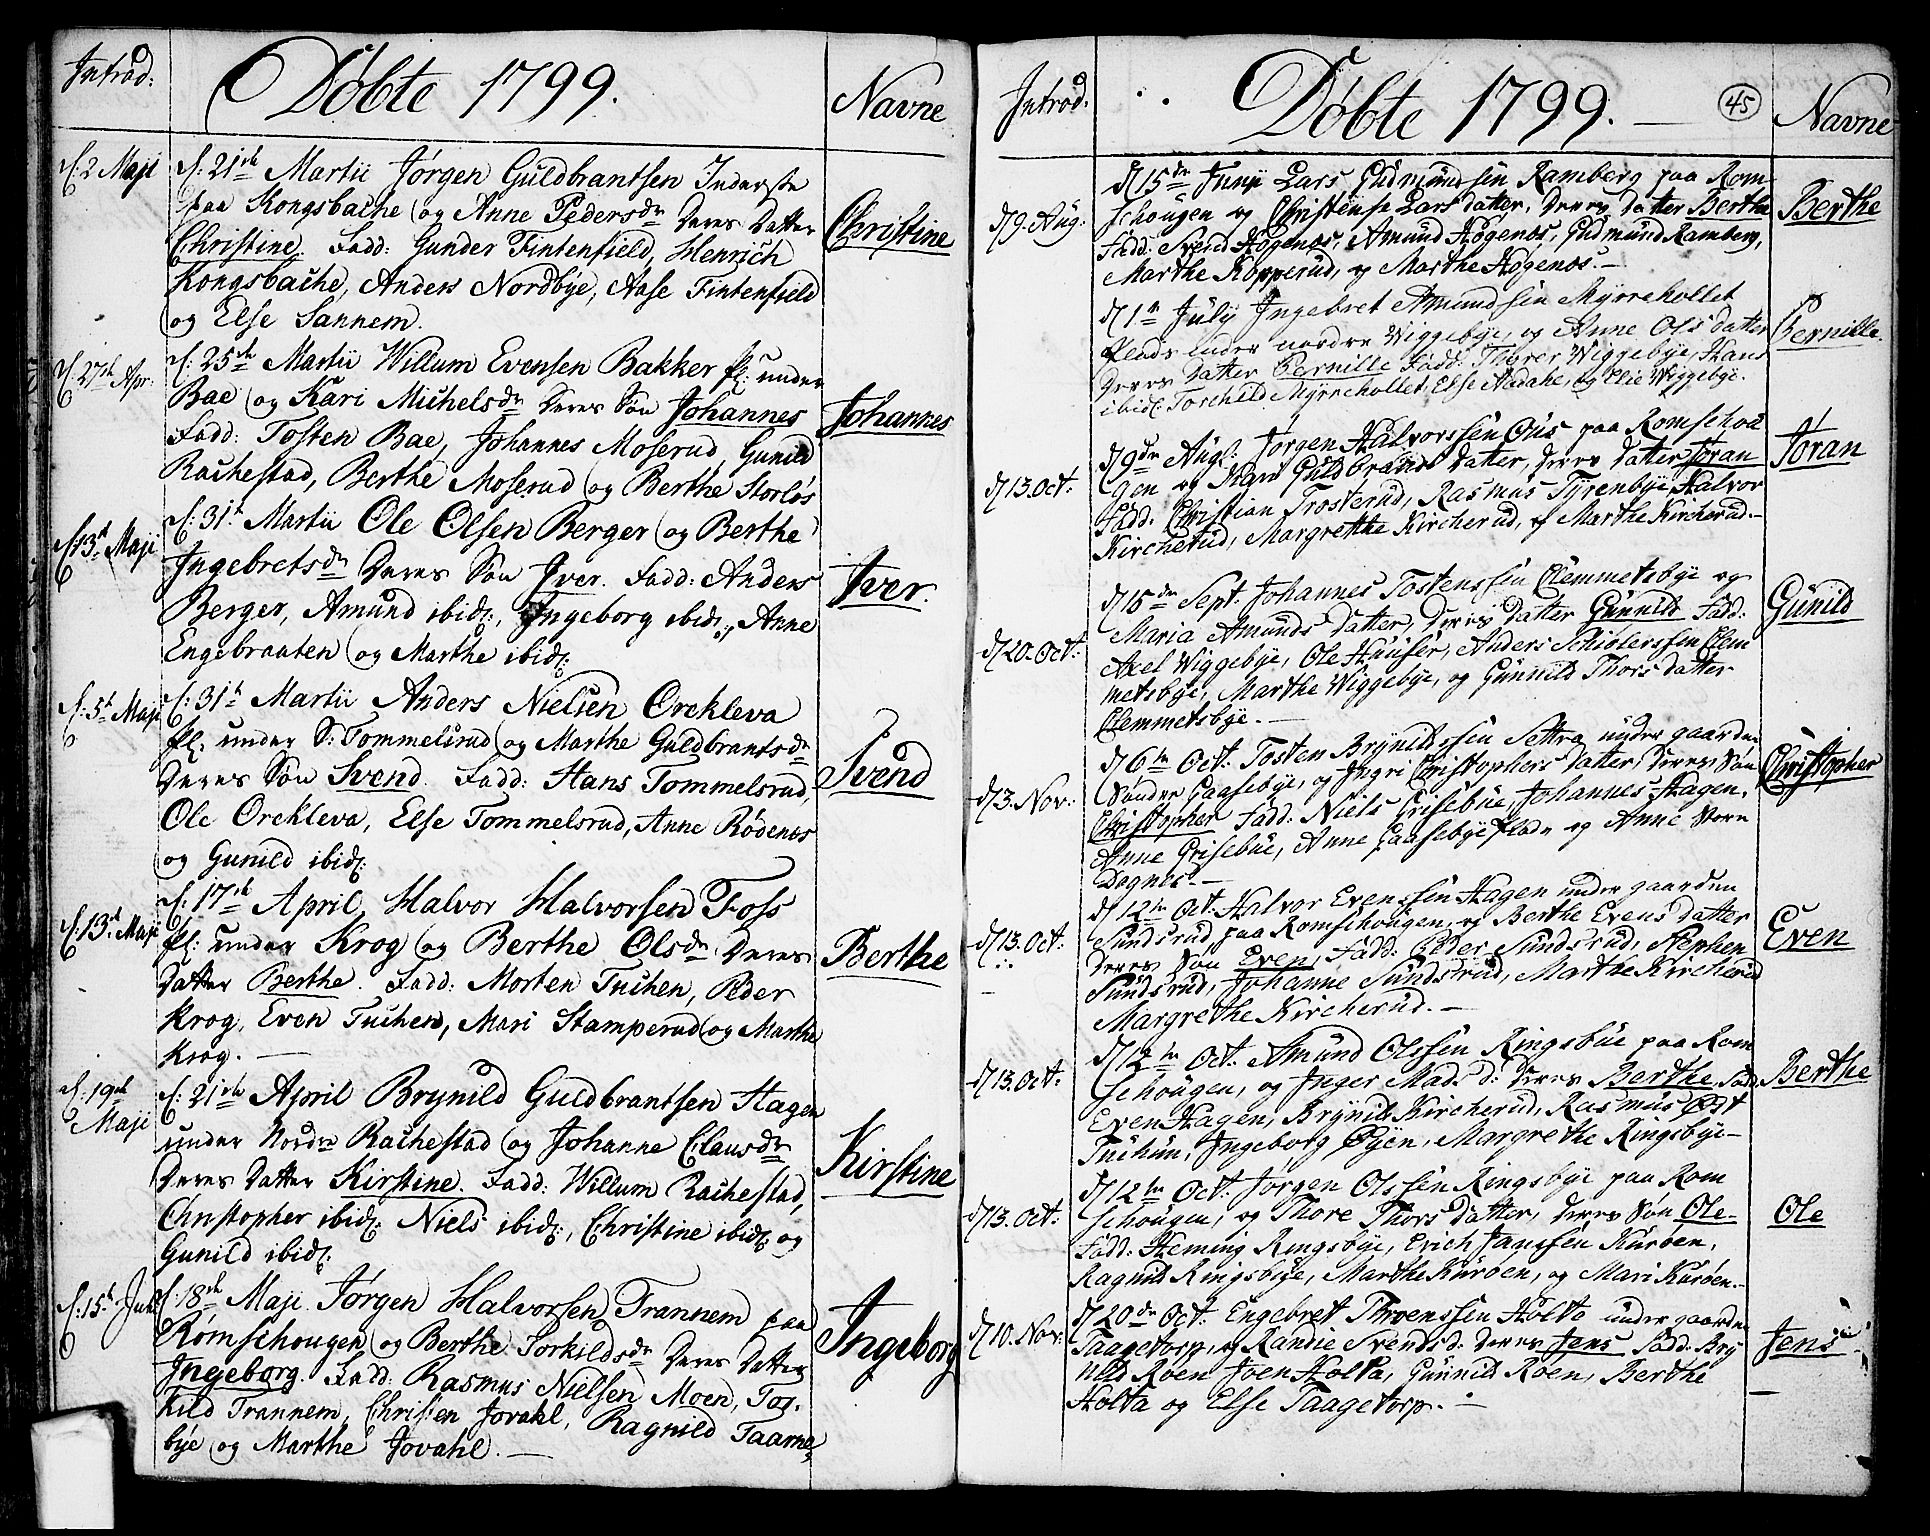 Introd:
Döbte 1799.
Navne
d: 2 Maji
d: 21de Martii Jørgen Guldbrantsen Inderste
paa Kongsbache og Anne Pedersdr Deres Datter
Christine. Fadd: Gunder Fintenfield, Henrich
Kongsbache, Anders Nordbye, Aase Fintenfield
og Else Sannem.
Christine
d: 27th Apr:
d: 25de Martii Willum Evensen Bakker pl: under
Bae og Kari Michelsdr Deres Søn Johannes
Fadd: Tosten Bae, Johannes Moserud, Gunild
Rachestad, Berthe Moserud og Berthe Storløs
Johannes
d: 13d Maji
d: 31t Martii Ole Olsen Berger og Berthe
Ingebretsdr Deres Søn Iver. Fadd: Anders
Berger, Amund ibid:, Ingeborg ibid:, Anne
Engebraaten og Marthe ibid:
Iver.
d: 5t Maji
d: 31t Martii Anders Nielsen Orekleva
pl: under S: Tommelsrud og Marthe Guldbrantsdr
Deres Søn Svend. Fadd: Hans Tommelsrud,
Ole Orekleva, Else Tommelsrud, Anne Rödenes
og Gunild ibid:
Svend
d: 13d Maji
d: 17de April Halvor Halvorsen Foss
pl: under Krog og Berthe Olsdr Deres
Datter Berthe. Fadd: Morten Tuchen, Peder
Krog, Even Tuchen, Mari Stamperud og Marthe
Krog.
Berthe
d: 19de
Maji
d: 21de April Brynild Guldbrantsen Hagen
under Nordre Rachestad og Johanne Clausdr
Deres Datter Kirstine. Fadd: Willum Rachestad,
Christopher ibid: Niels ibid:, Christine ibid: og
Gunild ibid:
Kirstine
d: 15t Juli
d: 18de Maji Jørgen Halvorsen Trannem paa
Rømschougen og Berthe Torkildsdr Deres Datter
Ingeborg. Fadd: Rasmus Nielsen Moen, Tor-
kild Trannem, Christen Jovahl, Ragnild Taarne
bye og Marthe Jovahl.
Ingeborg
Introd.
Döbte 1799.
45
Navne
d/9. Aug:
d/15de Junji Lars Gudmundssen Ramberg paa Rom-
schougen og Christense Larsdatter, deres datter Berthe
Fadd: Svend Høgenes, Amund Høgenes, Gudmund Ramberg,
Marthe Kopperud, og Marthe Høgenes.
Berthe
d/1te July Ingebret Amundssen Myrrehollet
Plads under nordre Wiggebye, og Anne Olsdatter
deres datter Pernille Fadd: Thorer Wiggebye, Hans
ibid: Torchild Myrrehollet, Else Aadahl, og Elie Wiggebye.
Pernille.
d/13. Oct:
d/9de Aug: Jørgen Halvorssen Ous paa Romschou
gen og Kari Guldbrandsdatter, deres datter Joran
Fadd: Christian Trosterud, Rasmus Tyrenbye, Halvor
Kircherud, Margrethe Kircherud, og Marthe Kircherud.
Joran
d/20. Oct:
d/15de Sept: Johannes Tostenssen Clemmetsbye og
Maria Amundsdatter, deres datter Gunnild Fadd:
Axel Wiggebye, Ole Huuser, Anders Schiölerssen Clem
metsbye, Marthe Wiggebye, og Gunnild Thorsdatter
Clemmetsbye.
Gunild
d/3. Nov:
d/6te Oct: Tosten Brynildssen Settra under gaarden
Sönder Gaasebye, og Ingri Christophersdatter, deres Søn
Christopher Fadd: Niels Grisebue, Johannes Hagen,
Anne Grisebue, Anne Gaasebyeflade og Anne Store
Dognes.
Christopher
d/13. Oct:
d/12te Oct: Halvor Evenssen Hagen under gaarden
Sundsrud paa Romschougen, og Berthe Evensdatter
deres Søn Even, Fadd: Peder Sundsrud, Stephen
Sundsrud, Johanne Sundsrud, Marthe Kircherud
Margrethe Kircherud.
Even
d/13. Oct:
d/12te Oct: Amund Olssen Ringsbue paa Rom
schougen, og Inger Mads d: deres Berthe, Fadd:
Even Hagen, Brynild Kircherud, Rasmus Øst
Tuchun, Ingeborg Øyen, Margrethe Ringsbye.
Berthe
d/13. Oct:
d/12te Oct: Jørgen Olssen Ringsbye paa Rom
schougen, og Thore Thorsdatter, deres Søn Ole.
Fadd: Heming Ringsbye, Erich Janssen Kurøen,
Ragnild Ringsbye, Marthe Kurøen, og Mari Kurøen.
Ole
d/10. Nov:
d/20de Oct: Engebret Throenssen Holte under gaarden
Taagetorp, og Randie Svendsd: deres Jens Fadd: Bry
nild Roen Joen Holta, Gunnild Roen, Berthe
Holta og Else Taagetorp.
Jens